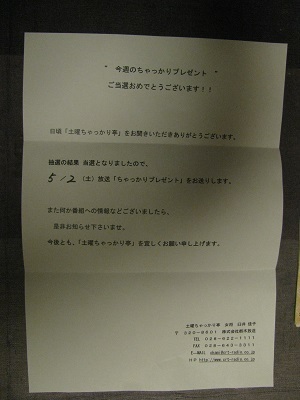 " 今週のちゃっかりプレゼント "
ご当選おめでとうございます！！
日頃「土曜ちゃっかり亭」をお聞きいただきありがとうございます。
抽選の結果 当選となりましたので、
5/2（土）放送「ちゃっかりプレゼント」をお送りします。
また何か番組への情報などございましたら、
是非お知らせ下さいませ。
今後とも、「土曜ちゃっかり亭」を宜しくお願い申し上げます。
土曜ちゃっかり亭
〒 320-8601 株式会社栃木放送
TEL 028-622-1111
FAX 028-643-3311
E-MAIL
HP http://www.crt-radio.co.jp